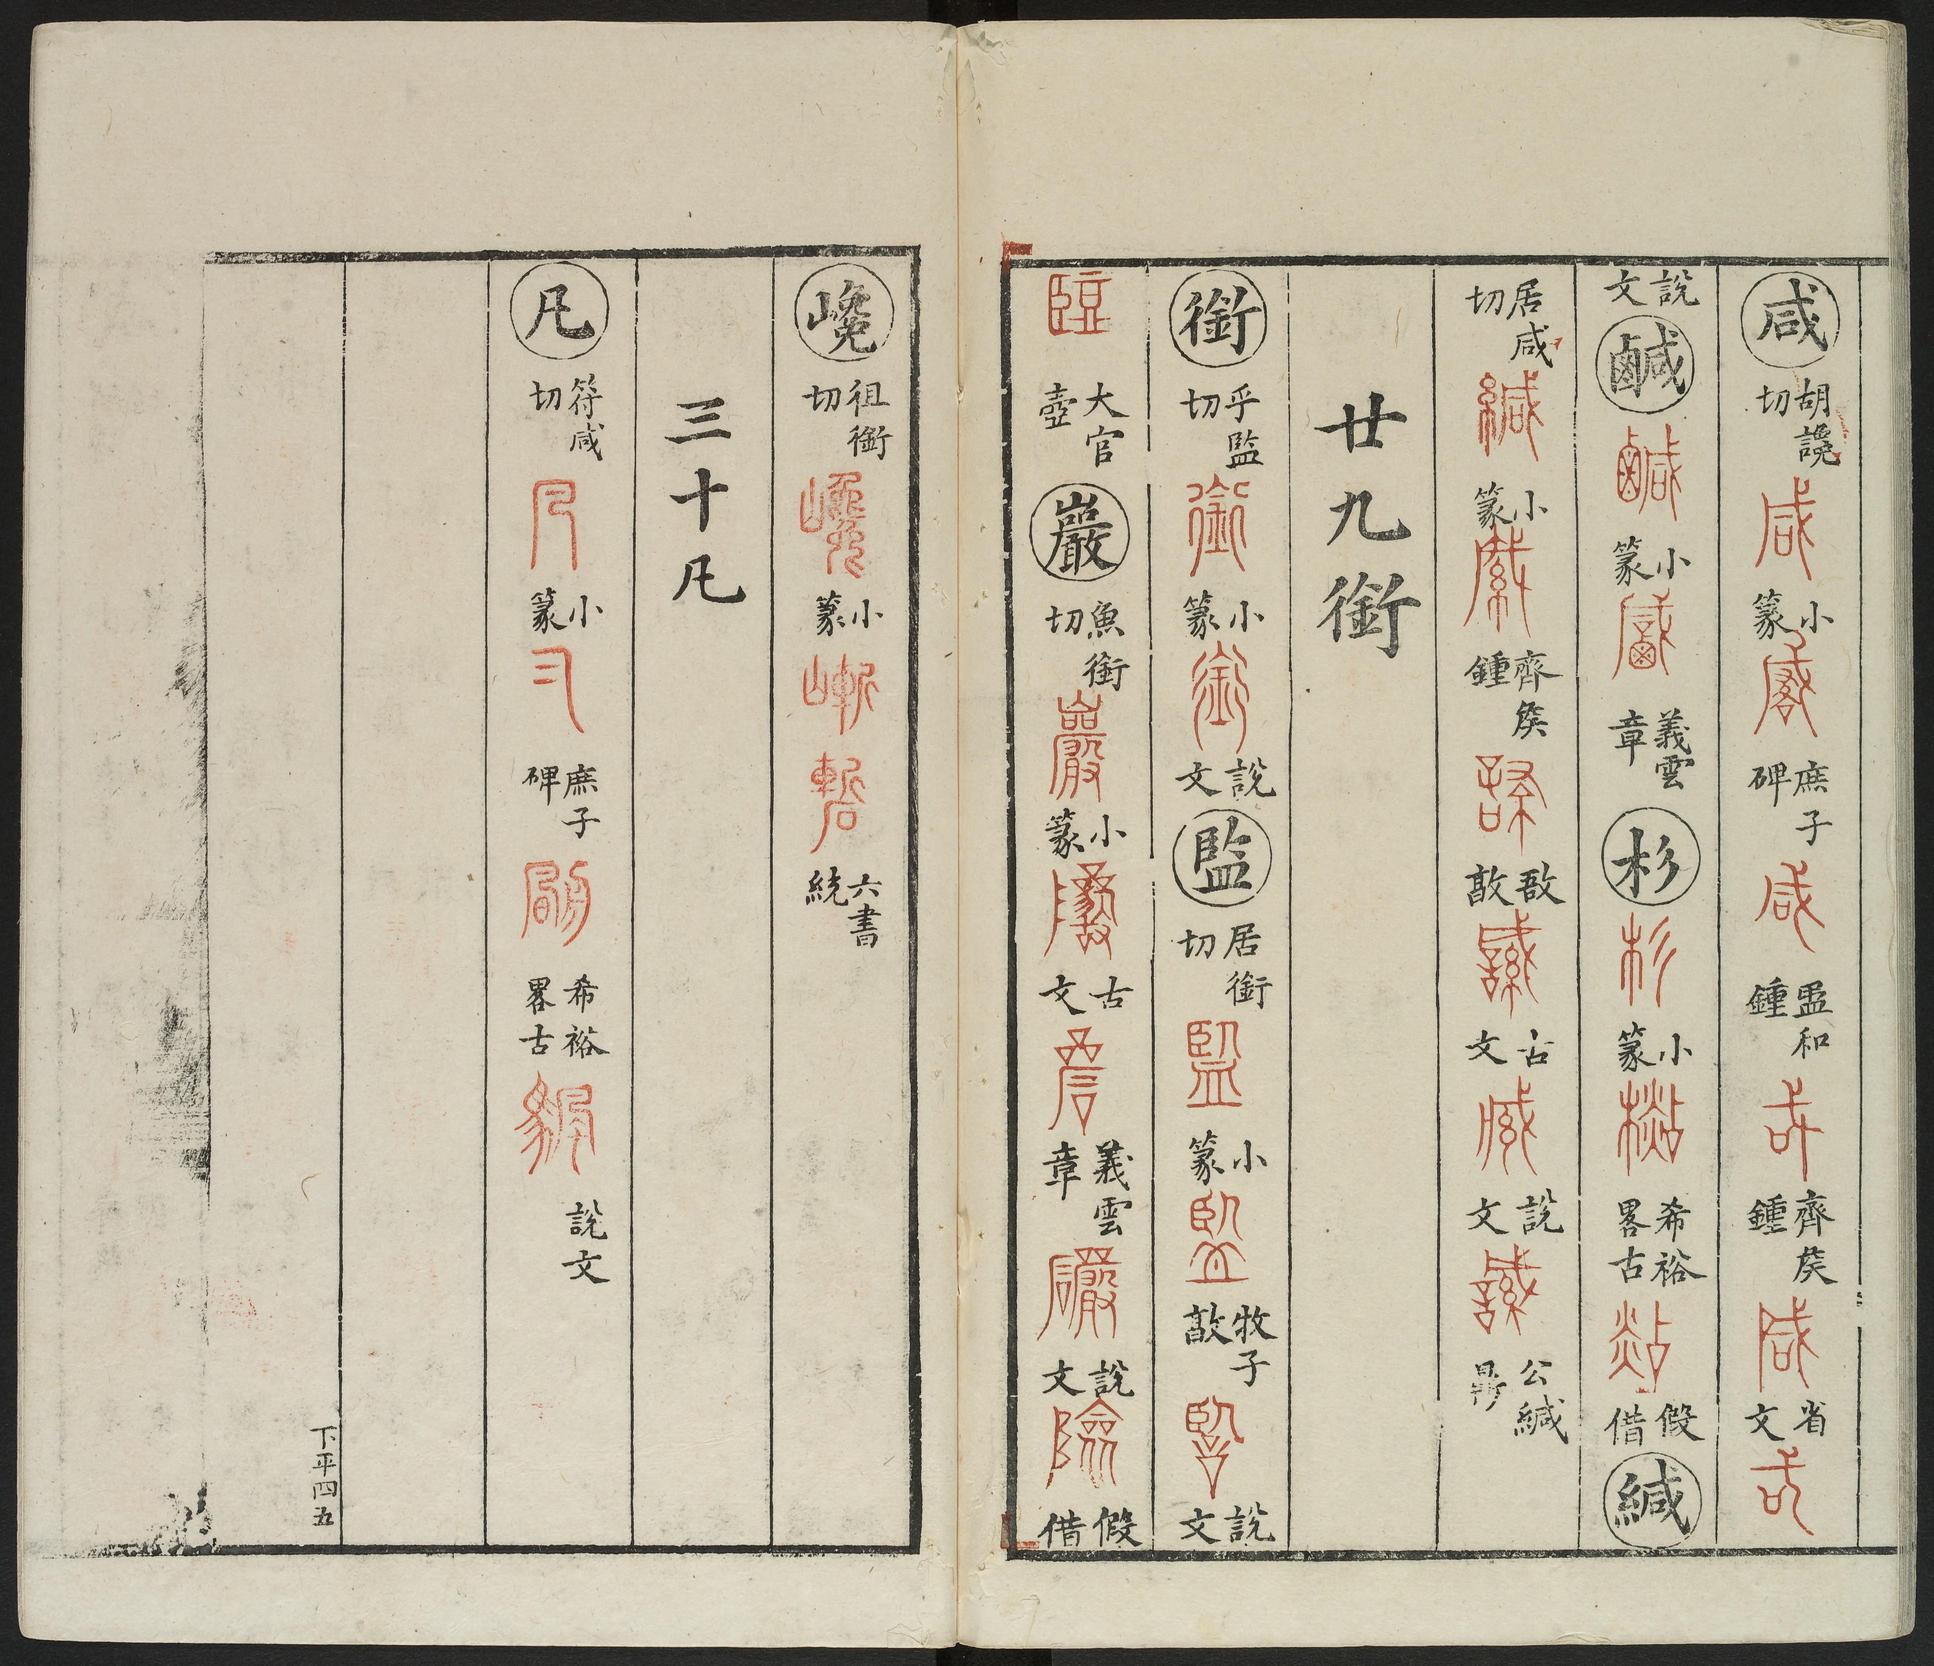 咸 胡讒切 咸 小篆 庶子碑 咸 盄和鍾 齊矦鍾 咸 省文
說文 鹹 鹹 小篆 義雲章 杉 杉 小篆 希裕畧古 假借 緘
居咸切 緘 小篆 齊矦鍾 敔敦 古文 說文 公緘鼎
廿九銜
銜 乎監切 銜 小篆 說文 監 居銜切 監 小篆 牧子敦 說文
大官壺 巖 魚銜切 巖 小篆 古文 義雲章 說文 假借
巉 祖銜切 巉 小篆 嶄 六書統
三十凡
凡 符咸切 凡 小篆 庶子碑 希裕畧古 說文
下平四五